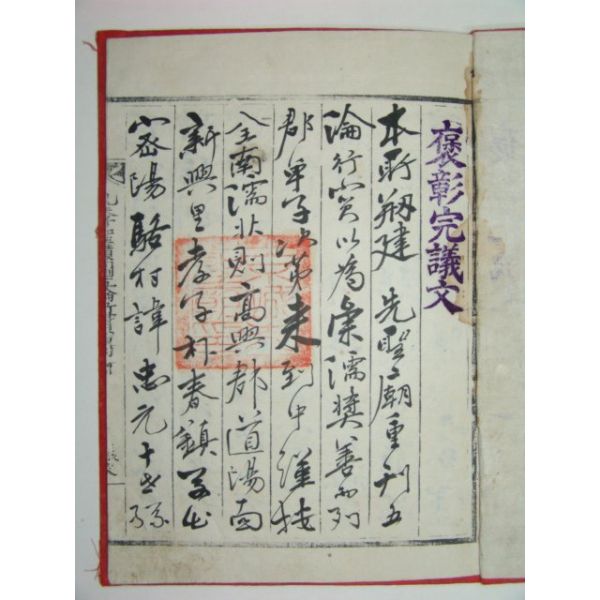 褒彰完議文
本所刱建先聖廟重刊五
倫行實以爲彙儒奬善而列
郡單子次第來到中謹按
全南儒狀則高興郡道陽面
新興里孝子朴春鎭字
密陽駱村諱忠元十世孫